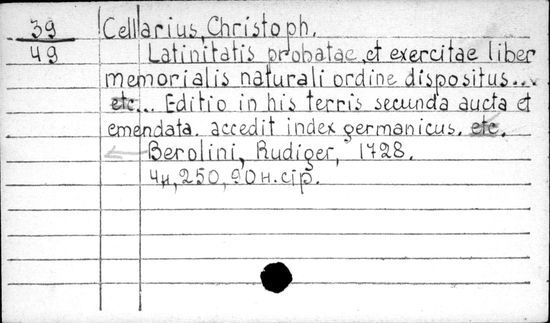 39 Cellarius, Christoph.
49 Latinitatis probatae et exercitae liber
memorialis naturali ordine dispositus...
etc... Editio in his terris secunda aucta et
emendata. accedit index germanicus. etc.
Berolini, Rudiger, 1728.
4н, 250, 90 н. стр.